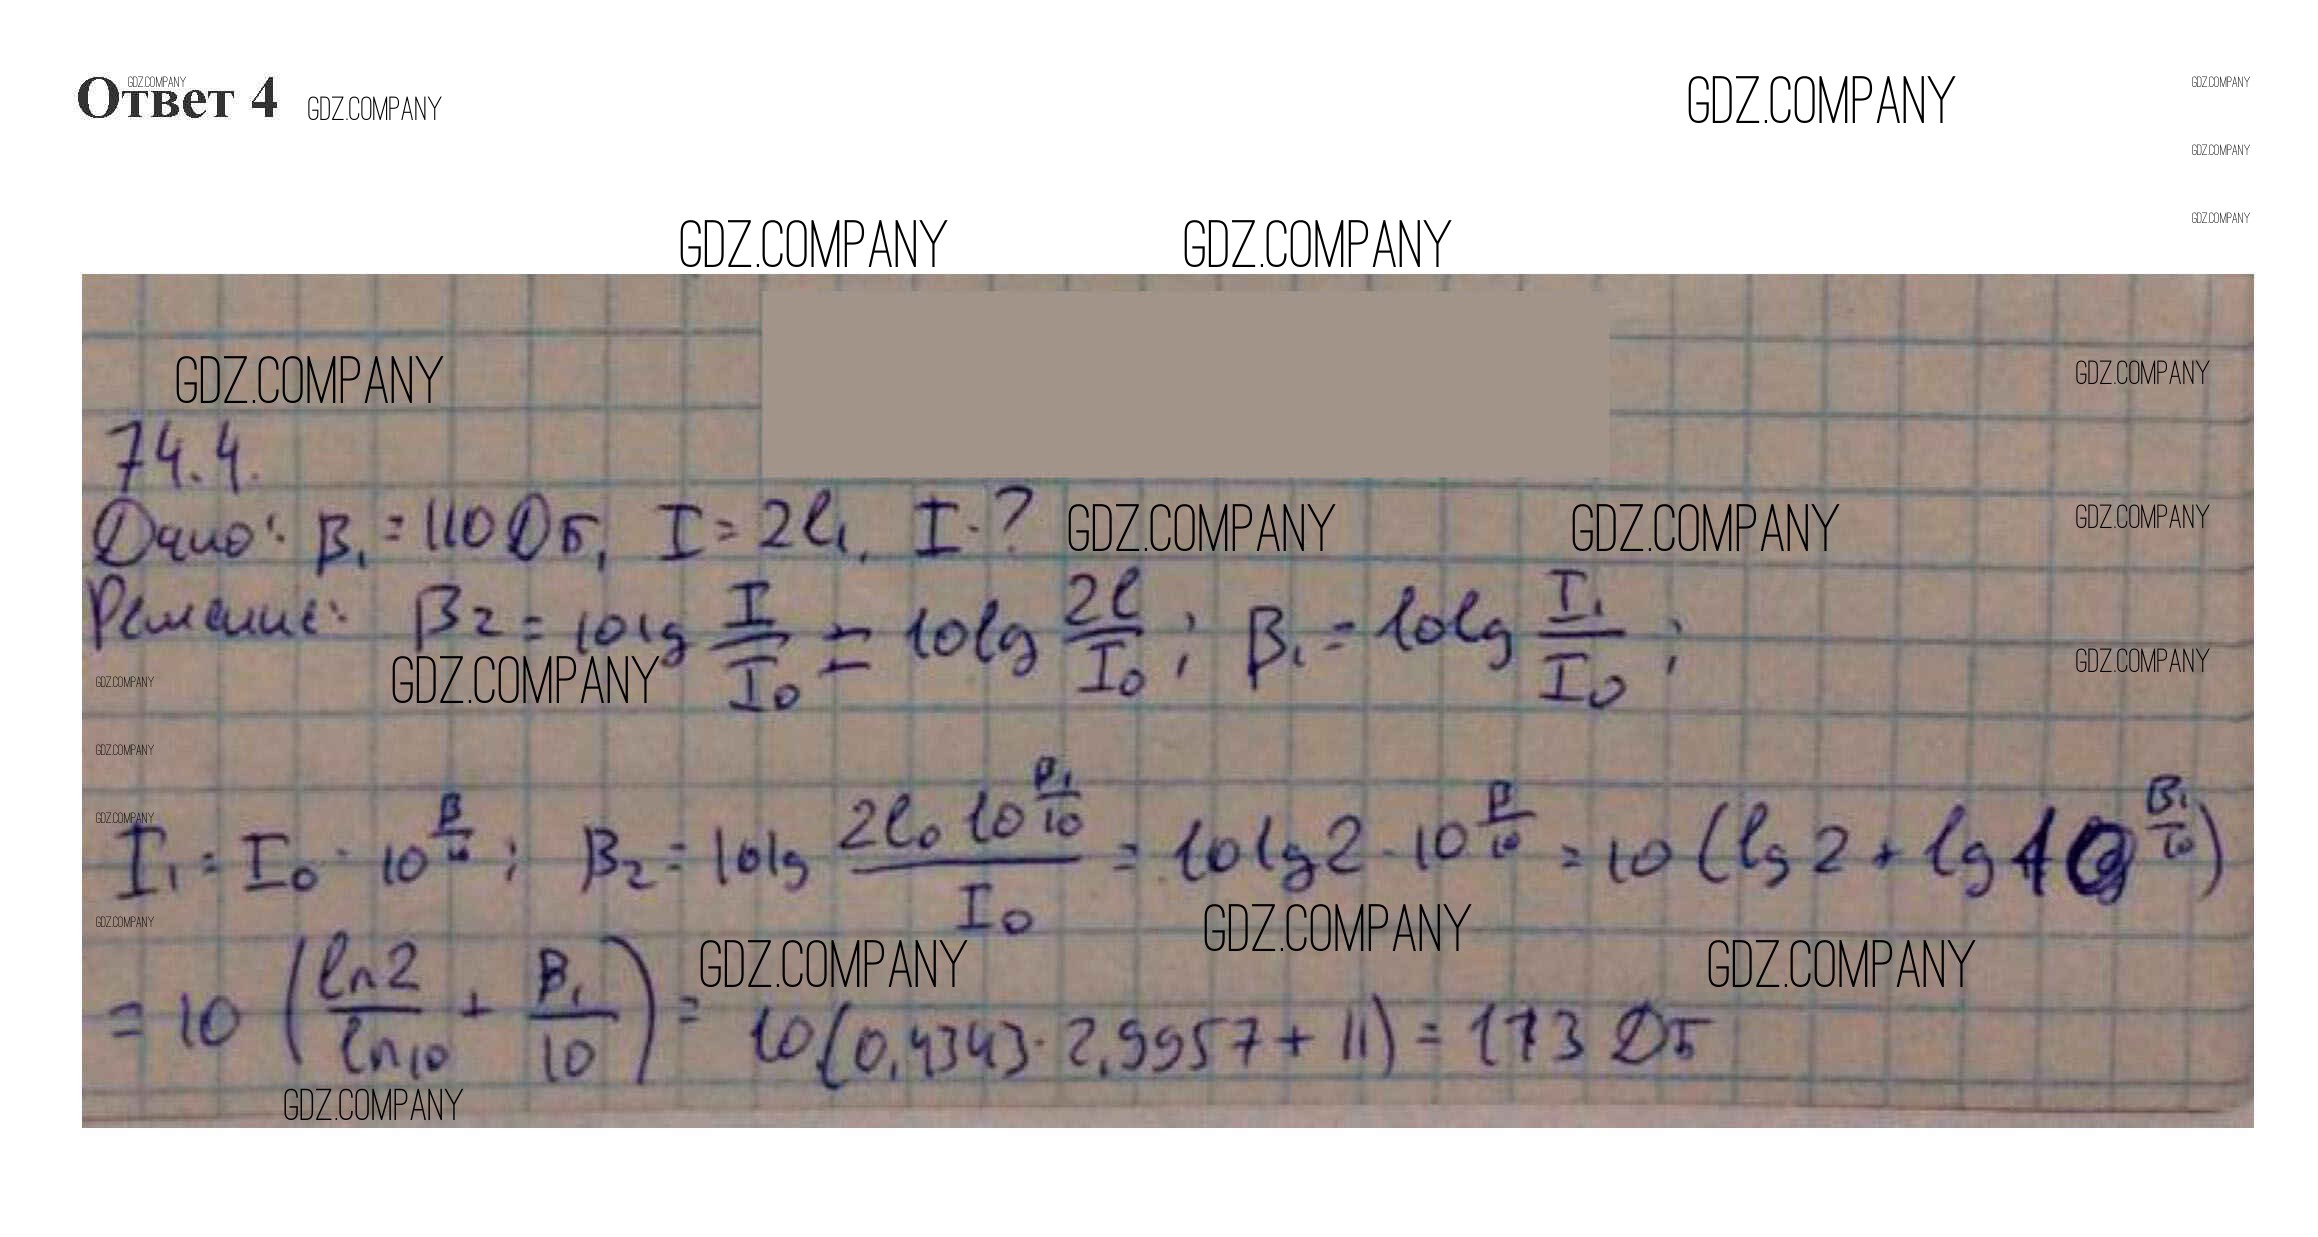 GDZ.COMPANY
Ответ 4 GDZ.COMPANY GDZ.COMPANY GDZ.COMPANY
GDZ.COMPANY
GDZ.COMPANY GDZ.COMPANY GDZ.COMPANY
GDZ.COMPANY GDZ.COMPANY
74.4.
Дано: β₁ = 110 Дб, I = 2l₁, I - ? GDZ.COMPANY GDZ.COMPANY GDZ.COMPANY
Решение: β2 = 10lg I/I₀ = 10lg 2l/I₀ ; β₁ = 10lg I₁/I₀ ;
GDZ.COMPANY GDZ.COMPANY GDZ.COMPANY
GDZ.COMPANY
GDZ.COMPANY
I₁ = I₀ · 10^(β/10) ; β₂ = 10lg (2l₀ 10^(β₁/10))/I₀ = 10lg2 · 10^(β/10) = 10 (lg2 + lg10^(β₁/10))
GDZ.COMPANY GDZ.COMPANY
GDZ.COMPANY GDZ.COMPANY
= 10 (ln2/ln10 + β₁/10) = 10(0,4343 · 2,9957 + 11) = 173 Дб
GDZ.COMPANY